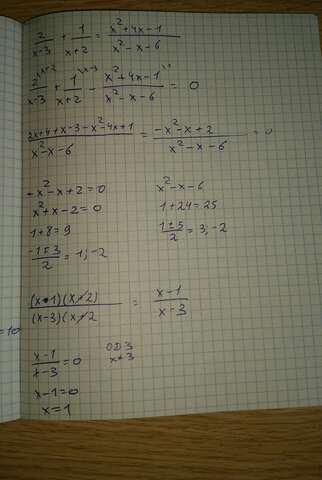 2/x-3 + 1/x+2 = x²+4x-1/x²-x-6
2\x+2/x-3 + 1\x-3/x+2 - x²+4x-1\1/x²-x-6 = 0
2x+4+x-3-x²-4x+1/x²-x-6 = -x²-x+2/x²-x-6 = 0
-x²-x+2=0 x²-x-6
x²+x-2=0 1+24=25
1+8=9 1±5/2 = 3, -2
-1±3/2 = 1; -2
(x-1)(x+2)/(x-3)(x+2 = x-1/x-3
=10
x-1/x-3 = 0 ОДЗ
x≠3
x-1=0
x=1